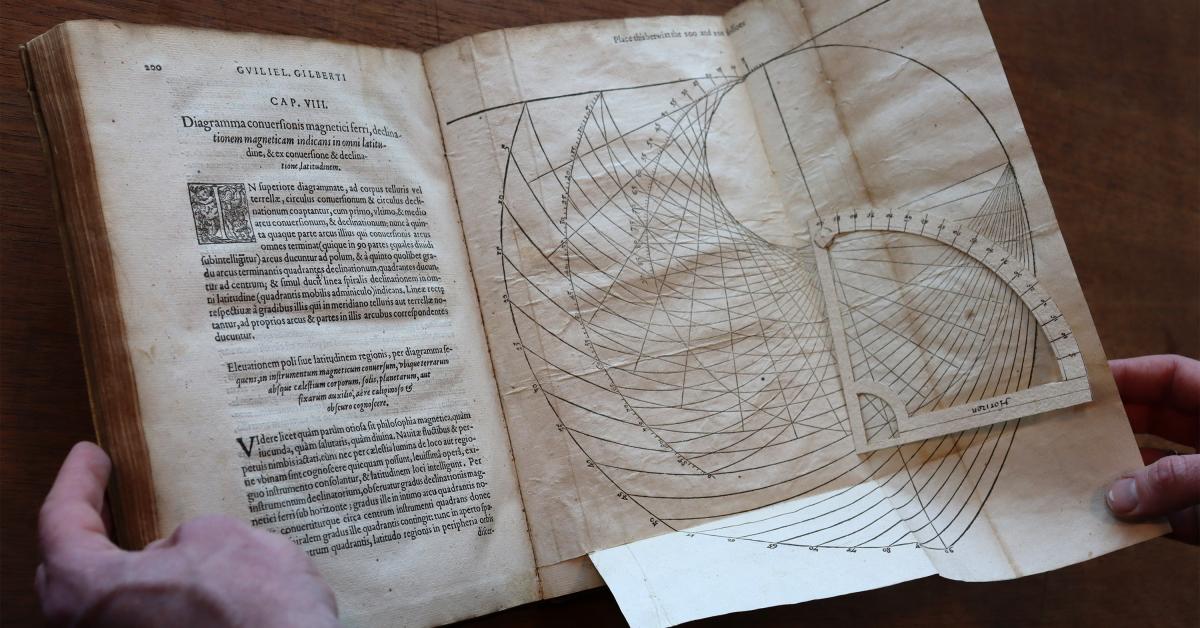 200
GVILIEL. GILBERTI
CAP. VIII.
Diagramma conuersionis magnetici ferri, declina-
tionem magneticam indicans in omni latitu-
dine, & ex conuersione & declina-
tione, latitudinem.
IN superiore diagrammate, ad corpus telluris vel
terrellæ, circulus conuersionum & circulus decli-
nationum coaptantur, cum primo, vltimo, & medio
arcu conuersionum, & declinationum: nunc à quin-
ta quaque parte arcus illius qui conuersionis arcus
omnes terminat (quique in 90 partes equales diuidi
subintelligitur) arcus ducuntur ad polum, & à quinto quolibet gra-
du arcus terminantis quadrantes declinationum, quadrantes ducun-
tur ad centrum; & simul ducit linea spiralis declinationem in om-
ni latitudine (quadrantis mobilis adminiculo) indicans. Lineæ rectę
respectiuæ à gradibus illis qui in meridiano telluris aut terrellæ no-
tantur, ad proprios arcus & partes in illis arcubus correspondentes
ducuntur.
Eleuationem poli siue latitudinem regionis, per diagramma se-
quens, in instrumentum magneticum conuersum, vbique terrarum
absque cælestium corporum, solis, planetarum, aut
fixarum auxilio, aëre caliginoso &
obscuro cognoscere.
Videre licet quàm parùm otiosa sit philosophia magnetica, quàm
iucunda, quàm salutaris, quàm diuina. Nautæ fluctibus & per-
petuis nimbis iactati, cùm nec per cælestia lumina de loco aut regio-
ne vbinam sint cognoscere quicquam possunt, leuissimâ operâ, exi-
guo instrumento consolantur, & latitudinem loci intelligunt. Per
instrumentum declinatorium, obseruatur gradus declinationis mag-
netici ferri sub horizonte; gradus ille in intimo arcu quadrantis no-
conuertiturque circa centrum instrumenti quadrans donec
spiralem gradus ille quadrantis contingit: tunc in aperto spa-
centrum quadrantis, latitudo regionis in peripheria orbis
discer-
Place this betwixt the 200 and 201 folioes
Horizon